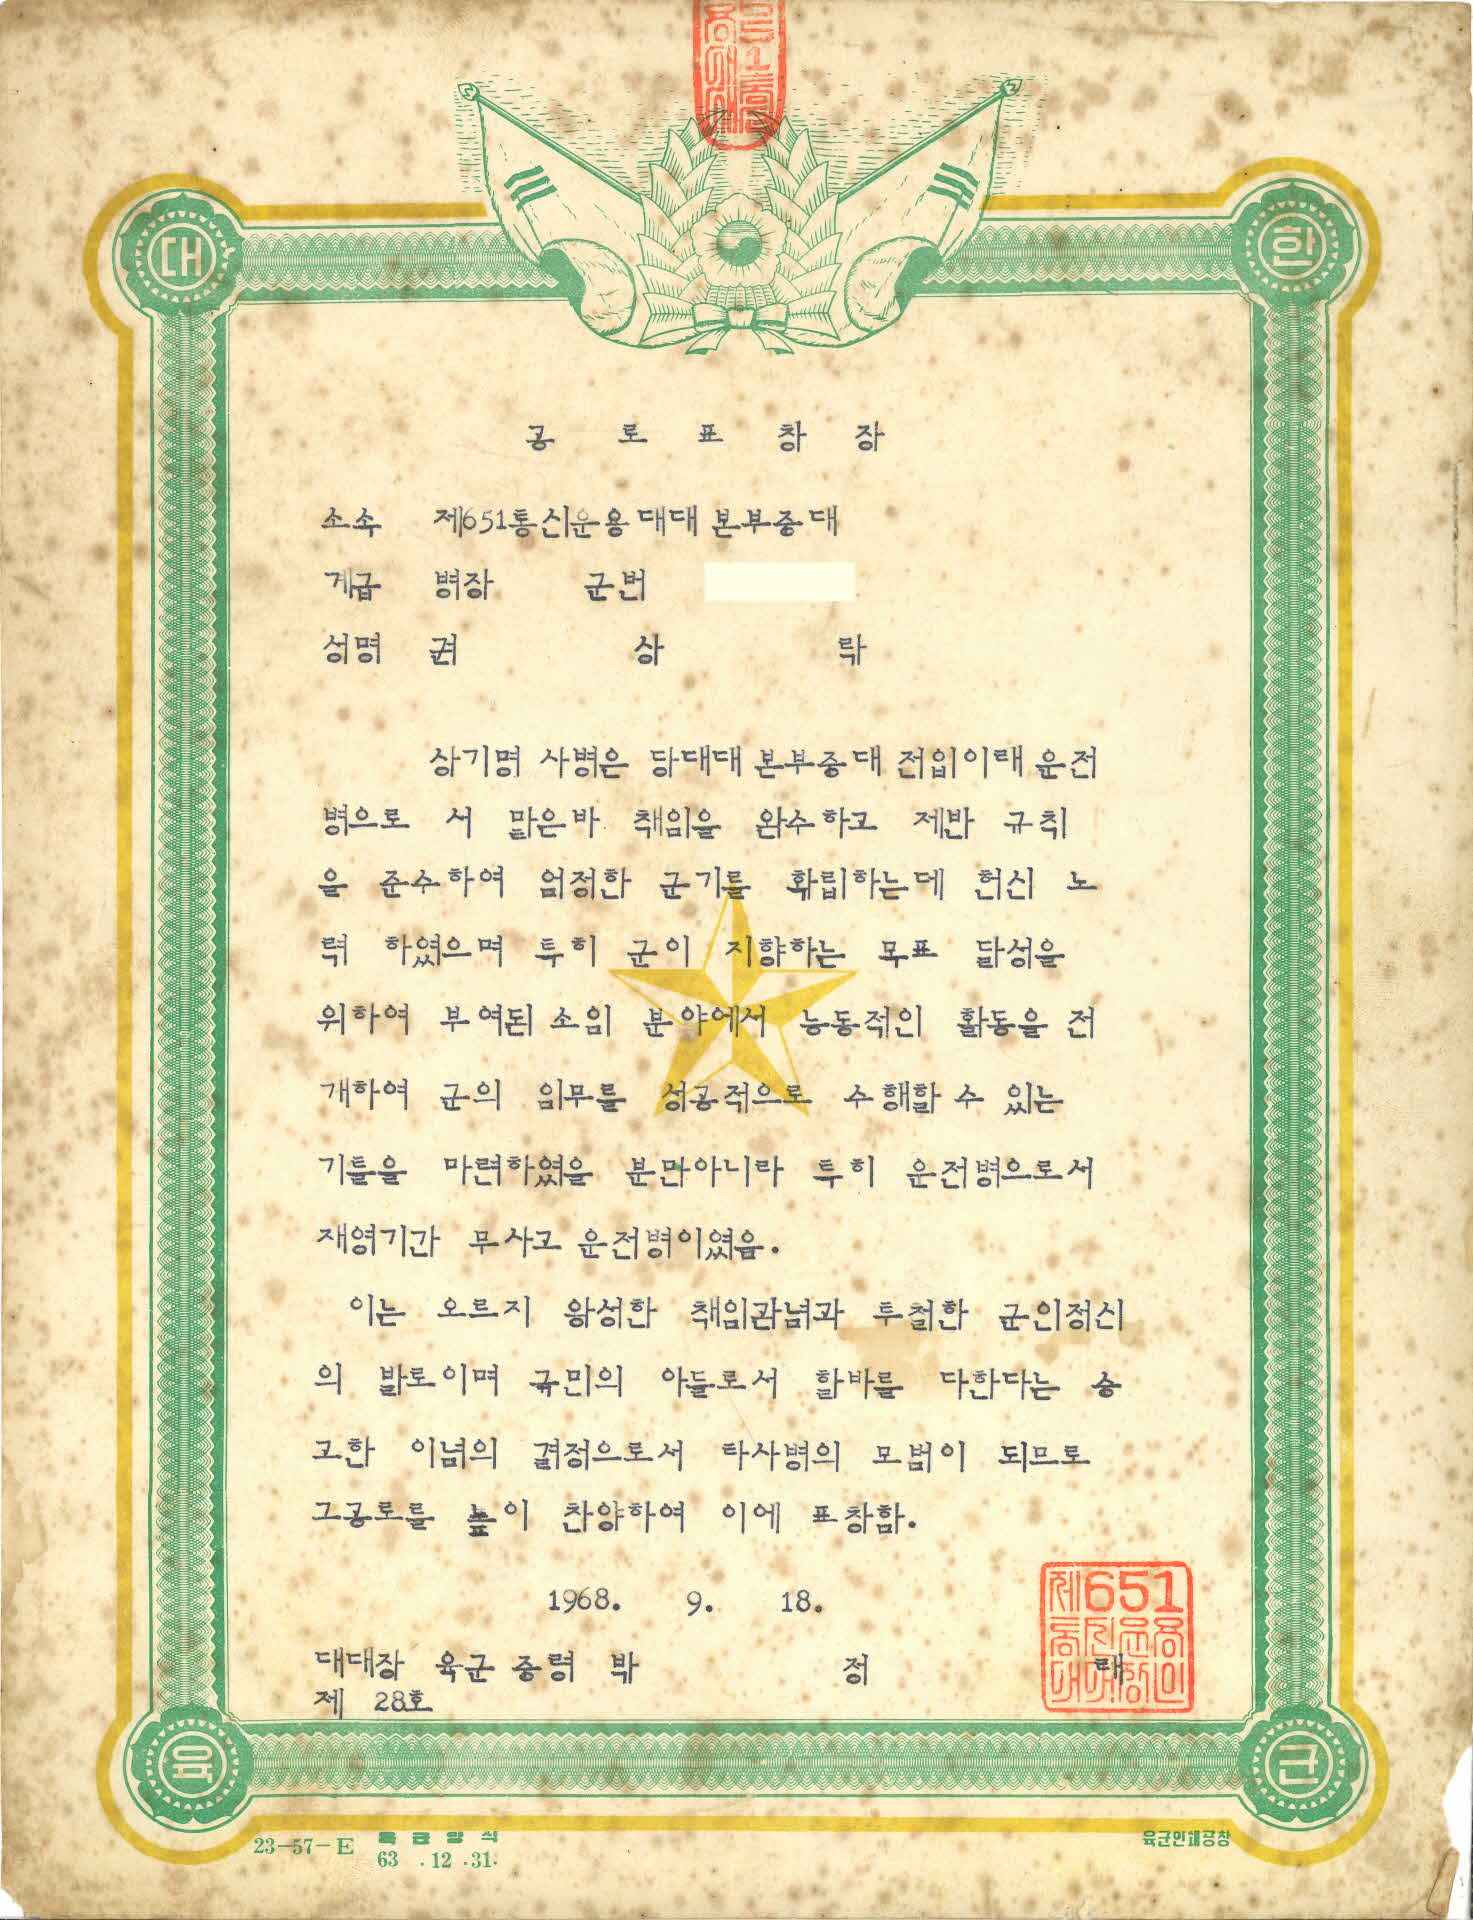 대 한
공 로 표 창 장
소속 제651통신운용대대 본부중대
계급 병장 군번
성명 권 상 락
상기명 사병은 당대대 본부중대 전입이래 운전
병으로 서 맡은바 책임을 완수하고 제반 규칙
을 준수하여 엄정한 군기를 확립하는데 헌신 노
력 하였으며 특히 군이 지향하는 목표 달성을
위하여 부여된 소임 분야에서 능동적인 활동을 전
개하여 군의 임무를 성공적으로 수행할 수 있는
기틀을 마련하였을 뿐만아니라 특히 운전병으로서
재영기간 무사고 운전병이였음.
이는 오르지 왕성한 책임관념과 투철한 군인정신
의 발로이며 국민의 아들로서 할바를 다한다는 숭
고한 이념의 결정으로서 타사병의 모범이 되므로
그공로를 높이 찬양하여 이에 표창함.
1968. 9. 18.
제651
대대장 육군 중령 박 정 래
제 28호
육 군
23-57-E 육군양식
63.12.31.
육군인쇄공창